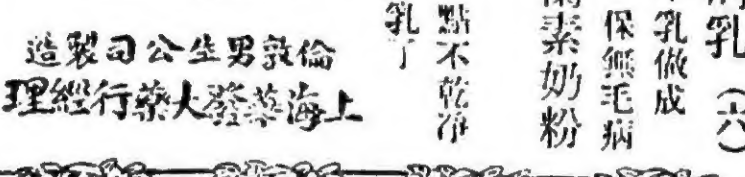 乳(六)
乳做成
保無毛病
素奶粉
點不乾净
乳了
倫敦男坐公司製造
上海華發大藥行經理